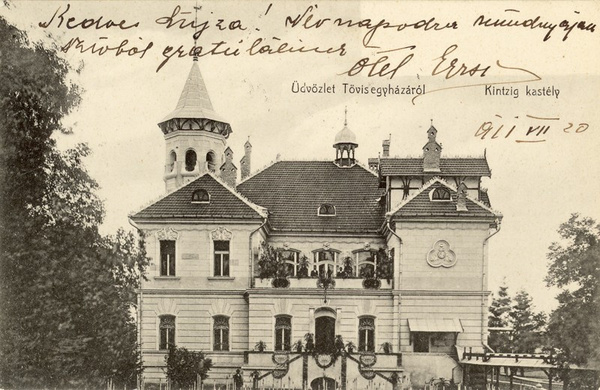 Kedves Lujza! Névnapodra mindnyájan
szívből gratulálunk
Ölel Erzsi
Üdvözlet Tövisegyházáról Kintzig kastély
911 VII 20